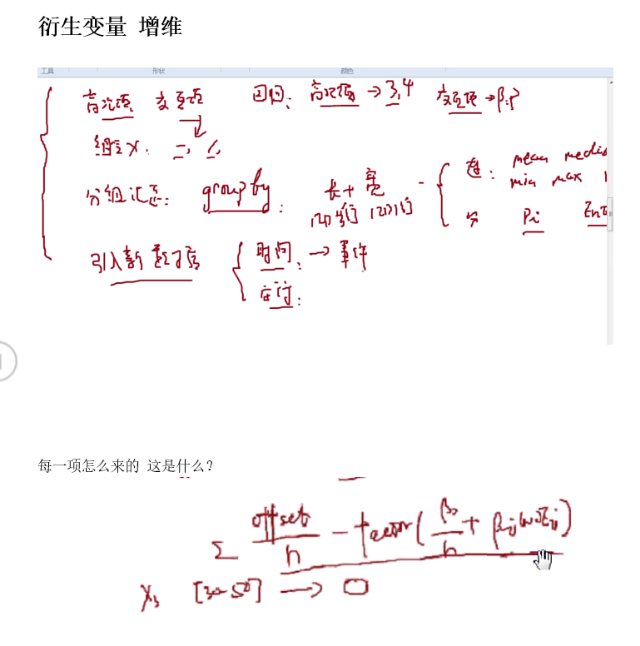 衍生变量 增维
工具 形状 颜色
高次项 交互项 回归: 高次项 → 3,4 交互项 → β.P
组合 X: 二,
分组汇总: group by: 长+宽 - 连: mean media
1对多行 1对1行 min max
分 Pi Ent
引入新数据 时间: → 事件
空间:
每一项怎么来的 这是什么?
Σ offset/n - factor(β₀/n + βij woeij)
X₃ [30-50] → 0